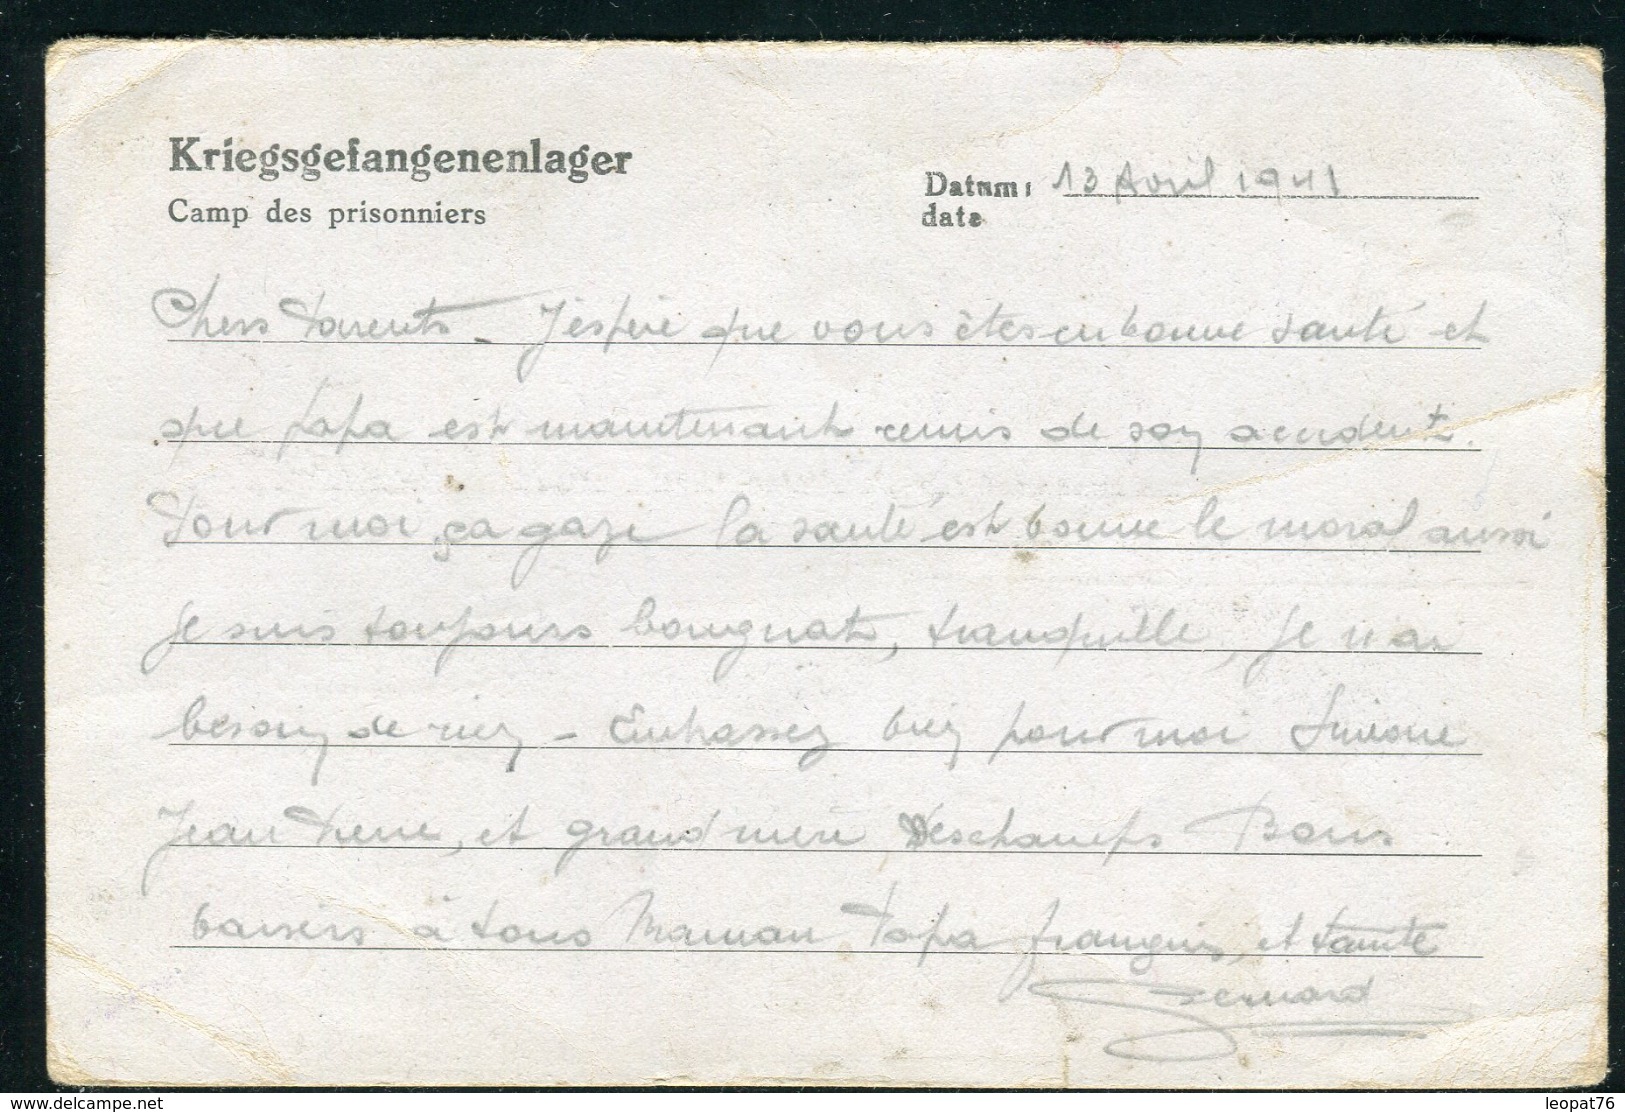 Kriegsgefangenenlager
Camp des prisonniers
Datum: 13 Avril 1941
date
Chers Parents - J'espère que vous êtes en bonne santé et
que Papa est maintenant remis de son accident.
Pour moi ça gaze la santé est bonne le moral aussi
je suis toujours tranquille, je n'ai
besoin de rien - Embrassez bien pour moi Simone
Jean Pierre, et grand mère Deschamps Bons
baisers à tous Maman Papa François, et tante
Bernard
www.delcampe.net
leopat76